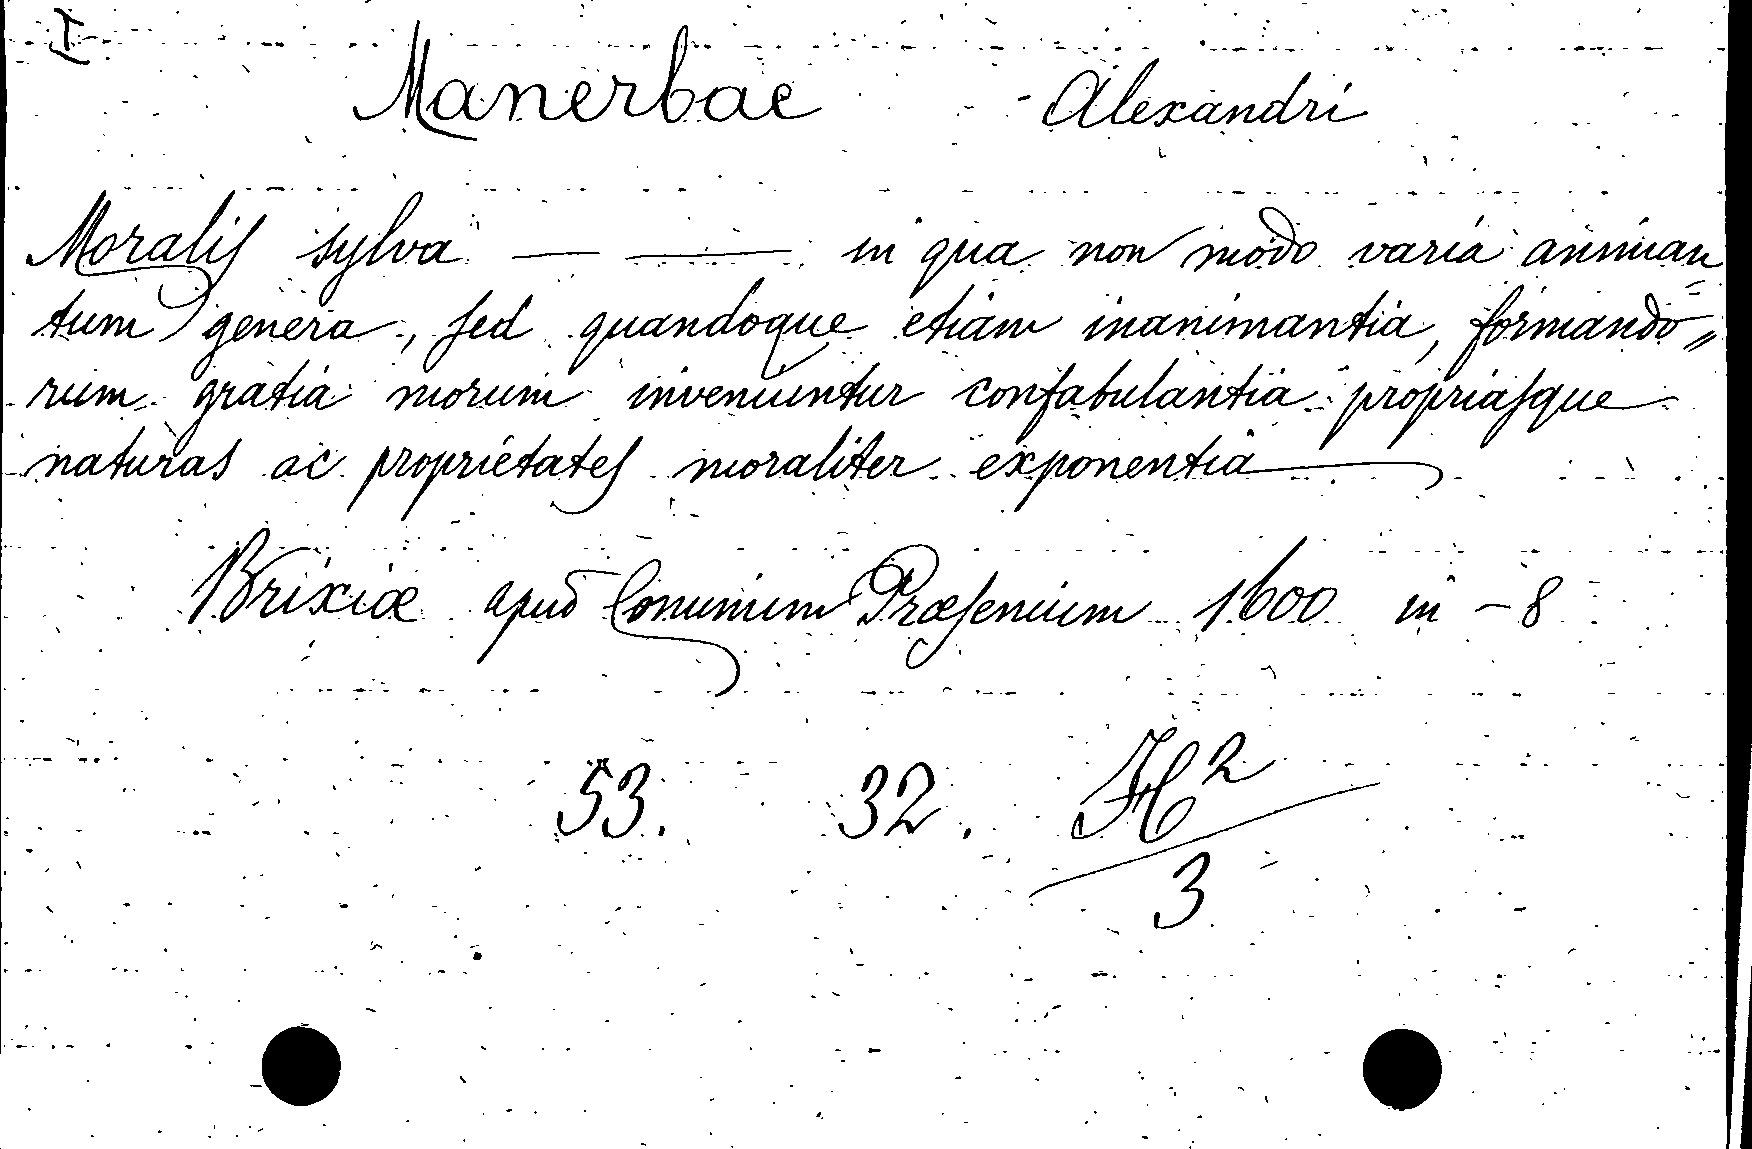 I
Manerbae - Alexandri
Moralis sylva — — in qua non modo varia animan=
tum genera, sed quandoque etiam inanimantia, formando„
rum gratia morum inveniuntur confabulantia propriasque
naturas ac proprietates moraliter exponentia
Brixiæ apud Cominum Præsenium 1600 in - 8
53. 32. H²
3